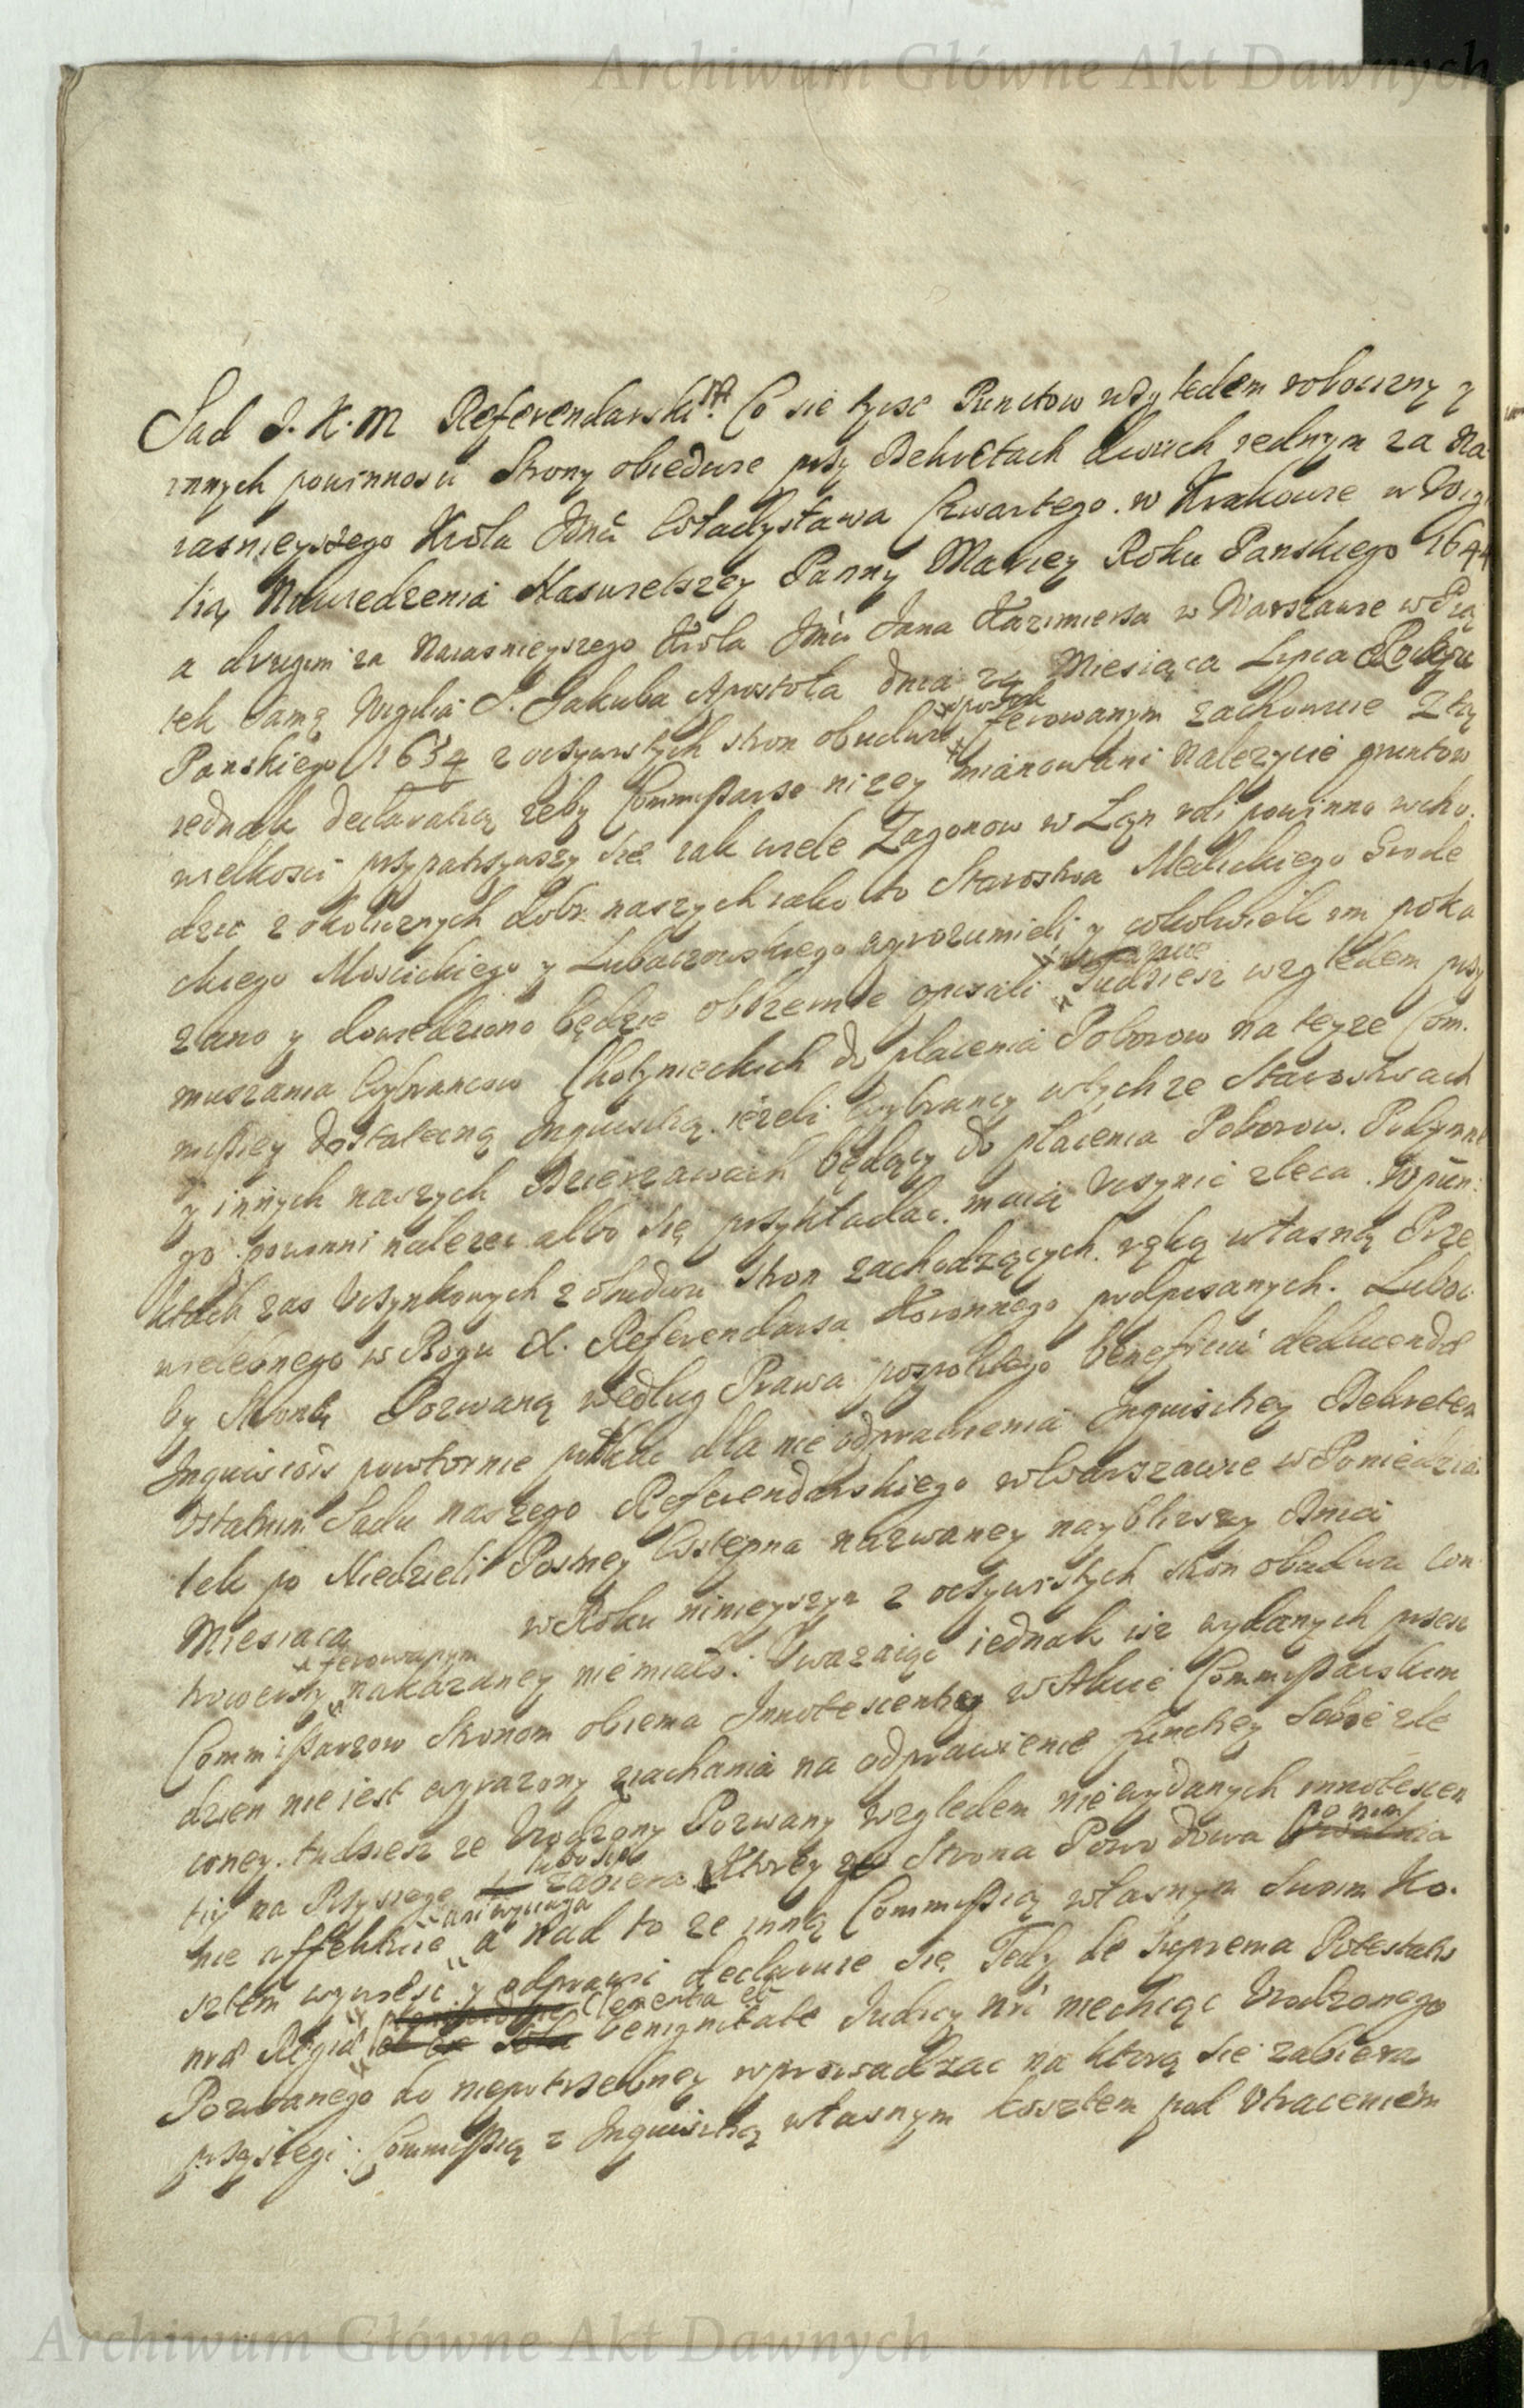 Archiwum Główne Akt Dawnych
Sad J. K. M Referendarski. Co sie tycze Punctow względem robocizny y
innych powinnosci Strony obiedwie przy Dekretach dwuch iednym za Na
iasnieyszego Krola Jmci Władysława Czwartego. w Krakowie w Wigi
lią Nawiedzenia Naswietszey Panny Mariey Roku Panskiego 1644
a drugim za Naiasnieyszego Krola Jmci Jana Kazimierza w Warszawie w Pią
tek samą Wigilia S. Jakuba Apostoła dnia 24 Miesiąca Lipca Roku
Panskiego 1654 z oczywistych stron obudwu ferowanym zachowuie z tą
iednak declaratią zeby Commissarze nizey mianowani nalezycie gruntow
wielkosci przypatrzywszy sie iak wiele Zagonow w Łan roli powinno wcho
dzic z okolicznych dobr naszych iako to Starostwa Medickiego Grode
ckiego Moscickiego y Lubaczowskiego wyrozumieli y cokolwiek im poka
zano y dowiedziono będzie obszernie opisali Tudziesz względem przy
muszania Wybrancow Chotynieckich do płacenia Poborow na teyze Com
missiey dostateczną Inquisitią iezeli Wybrancy w tychze Starostwach
y innych naszych Dzierzawach będący do płacenia Poborow. Podymne
go powinni nalezec albo się przykładac. maią uczynic zleca. W pun
ktach zas Uczynkowych z obudwu stron zachodzących ręką własną Prze
wielebnego w Bogu X. Referendarza Koronnego podpisanych. Lubo
by Strona Pozwaną według Prawa pospolitego beneficia deducendæ
Inquisitionis powtornie dla nie odprawienia Inquisitiey Dekretem
ostatnim Sadu naszego Referendarskiego w Warszawie w Poniedzia
łek po Niedzieli Postney Wstępna nazwaney nayblizszy Dnia
Miesiąca w Roku ninieyszym z oczywistych stron obudwu con
trowersiy ferowanym nakazaney nie miało. Uwazaiąc iednak isz wydanych przez
Commissarzow Stronom obiema Innotescentiey w Akcie Commissarskim
dzien nie iest wyrazony ziachania na odprawienie functiey Sobie zle
coney. tudziesz ze Urodzony Pozwany względem nie wydanych innotescen
tiy na Przysięgę lubo sie zabiera Ktorey Strona Powodowa po nim
nie affektuie ani wyciąga a nad to ze inną Commissią własnym Swoim Ko
sztem wywiesc y odprawic declaruie się Tedy de Suprema Potestatis
nræ Regiæ Clementia et benignitate Judicy nri niechcąc Urodzonego
Pozwanego do niepotrzebney wprowadzac na ktorą sie zabiera
przysięgi. Commissią z Inquisitią własnym kosztem pod Utraceniem
Archiwum Główne Akt Dawnych